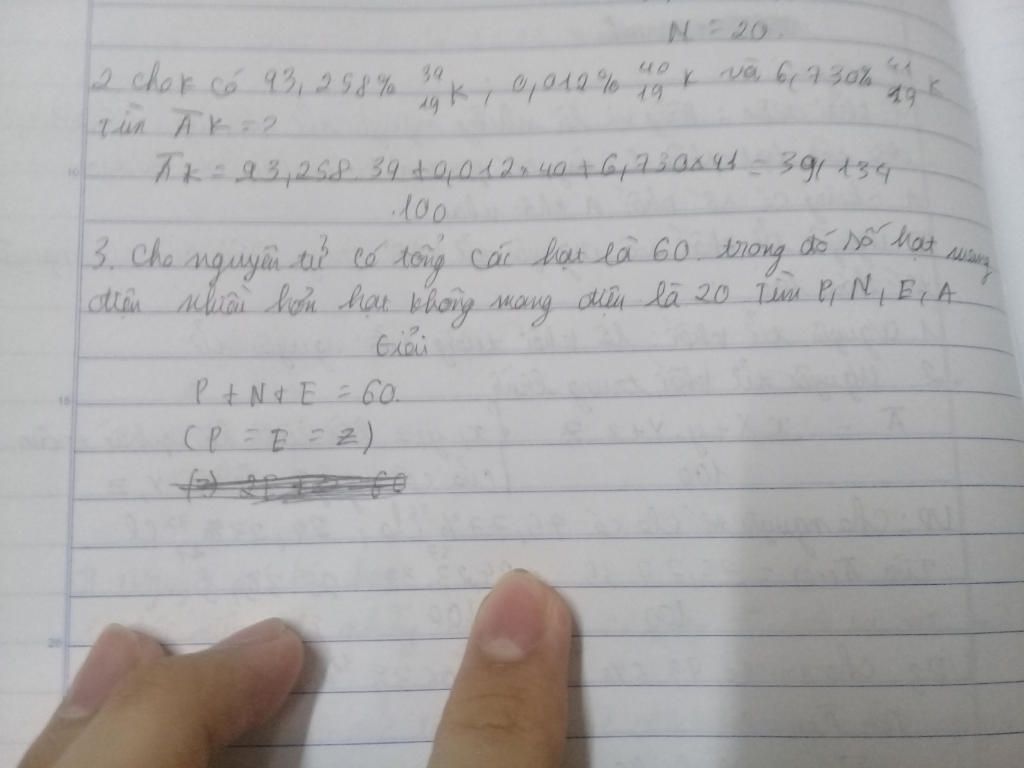 N = 20.
2 cho K có 93,258% ³⁹₁₉K ; 0,012% ⁴⁰₁₉K và 6,730% ⁴¹₁₉K
Tìm A̅K = ?
A̅K = 93,258.39 + 0,012×40 + 6,730×41 = 39,134
100
3. Cho nguyên tử có tổng các hạt là 60. trong đó số hạt mang
điện nhiều hơn hạt không mang điện là 20 Tìm P, N, E, A
Giải
P + N + E = 60.
(P = E = Z)